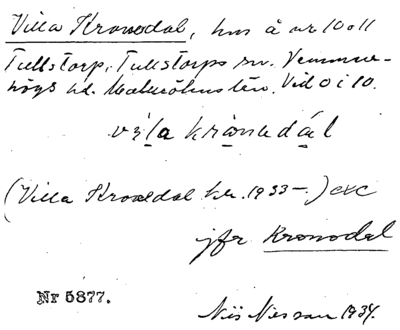 Villa Kronodal, hus å nr 10 o 11
Tullstorp, Tullstorps sn. Vemmen-
högs hd. Malmöhus län. Vid O i 10.
vila kronedal
(Villa Kronedal kbr. 1933 – ) exc
jfr Kronodal
Nr 5877.
Nils Nilsson 1934.